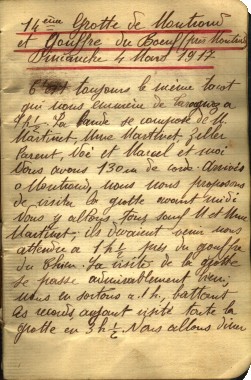 14ème Grotte de Montrond
et Gouffre du Boeuf (près Montrond)
Dimanche 4 Mars 1917
C'est toujours le même tacot
qui nous emmène de
1h½. La bande se compose de M.
Martinet, Mme Martinet, Zeller
Parent, Noé et Marcel et moi
Nous avons 130m de corde. Arrivés
à Montrond, nous nous proposons
de visiter la grotte avant midi
Nous y allons, tous sauf M. et Mme
Martinet; ils devaient venir nous
attendre à 1h½ près du gouffre
du Chien. La visite de la grotte
se passe admirablement bien,
nous en sortons à 1h, battant
les records, ayant visité toute la
grotte en 3h½. Nous allons dîner